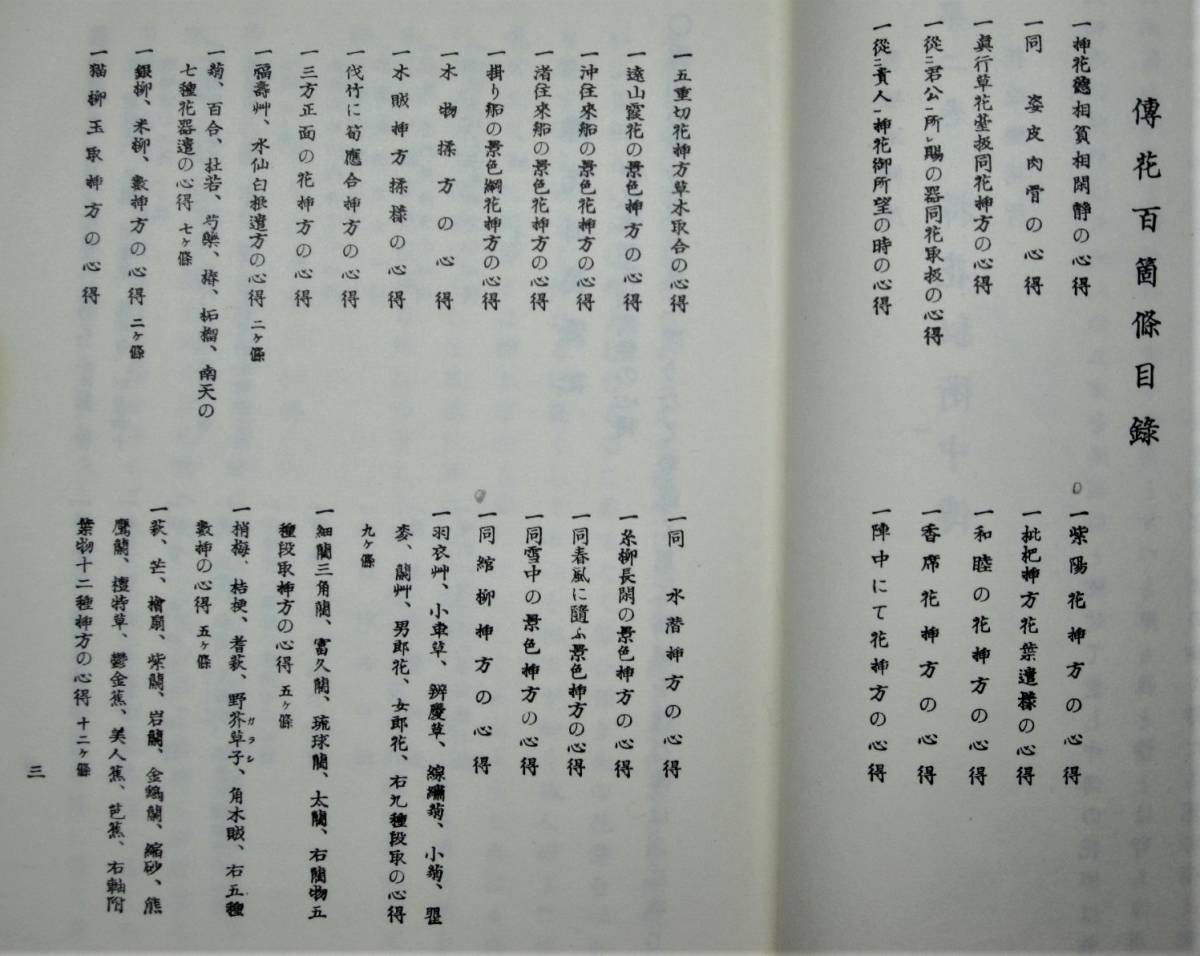 傳花百箇條目錄
一挿花㐂相貧相閑靜の心得
一同　姿皮肉骨の心得
一眞行草花臺扱同花挿方の心得
一從二君公一所レ賜の器同花取扱の心得
一從二貴人一挿花御所望の時の心得
一紫陽花挿方の心得
一枇杷挿方花葉遣樣の心得
一和睦の花挿方の心得
一香席花挿方の心得
一陣中にて花挿方の心得
一五重切花挿方草木取合の心得
一遠山霞花の景色挿方の心得
一沖往來船の景色花挿方の心得
一渚往來船の景色花挿方の心得
一掛り船の景色綱花挿方の心得
一木物揉方の心得
一木賊挿方揉樣の心得
一伐竹に筍應合挿方の心得
一三方正面の花挿方の心得
一福壽艸、水仙白根遣方の心得 二ヶ條
一菊、百合、杜若、芍藥、椿、柘榴、南天の
七種花器遣の心得 七ヶ條
一銀柳、米柳、數挿方の心得 二ヶ條
一猫柳玉取挿方の心得
一同　水潜挿方の心得
一糸柳長閑の景色挿方の心得
一同春風に隨ふ景色挿方の心得
一同雪中の景色挿方の心得
一同綰柳挿方の心得
一羽衣艸、小車草、辨慶草、線繡菊、小菊、瞿
麥、蘭艸、男郎花、女郎花、右九種段取の心得
九ヶ條
一細藺三角藺、富久藺、琉球藺、太藺、右藺物五
種段取挿方の心得 五ヶ條
一梢梅、桔梗、蓍萩、野芥草子、角木賊、右五種
ガラシ
數挿の心得 五ヶ條
一萩、芒、檜扇、紫蘭、岩蘭、金鷄蘭、縮砂、熊
鷹蘭、檀特草、鬱金蕉、美人蕉、芭蕉、右軸附
葉物十二種挿方の心得 十二ヶ條
三